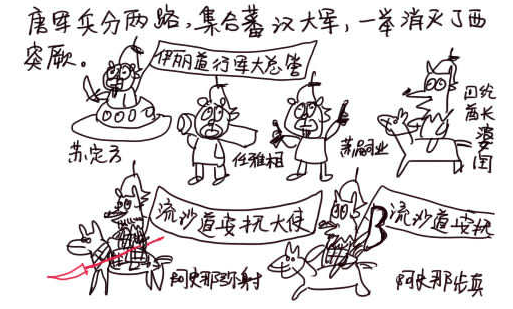 唐军兵分两路，集合蕃汉大军，一举消灭了西
突厥。
伊丽道行军大总管
苏定方
任雅相
萧嗣业
回纥
酋长
婆闰
流沙道安抚大使
阿史那弥射
流沙道安抚
阿史那步真